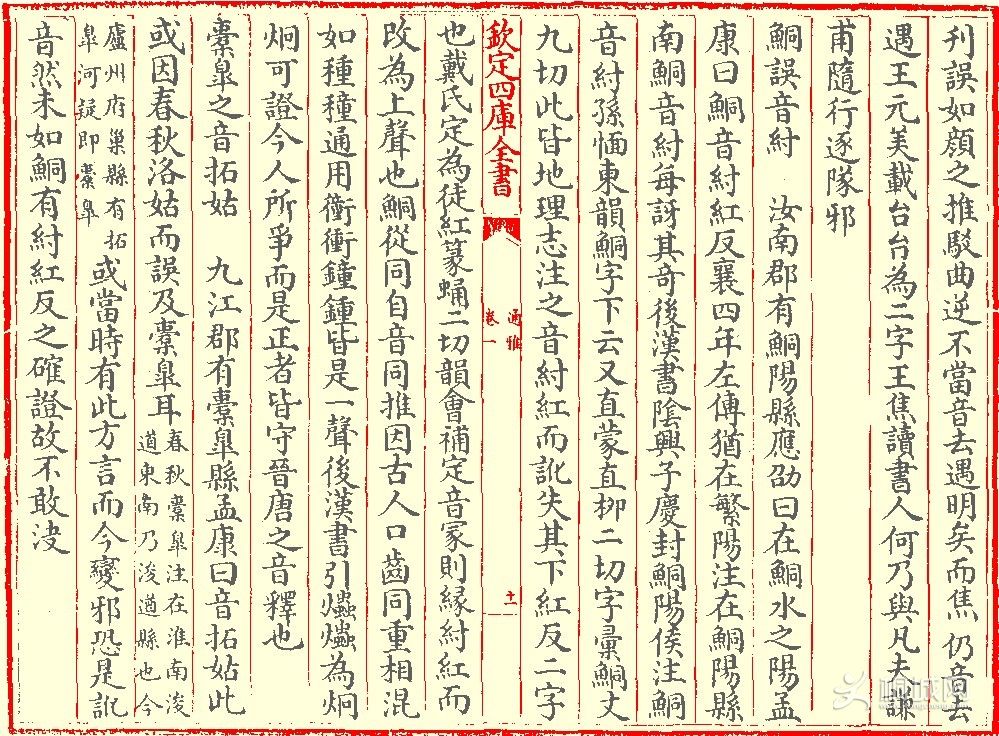 刊誤如顔之推駁曲逆不當音去遇明矣而焦仍音去
遇王元美載台台為二字王焦讀書人何乃與凡夫謙
甫隨行逐隊邪
鮦誤音紂 汝南郡有鮦陽縣應劭曰在鮦水之陽孟
康曰鮦音紂紅反襄四年左傳猶在繁陽注在鮦陽縣
南鮦音紂每訝其奇後漢書陰興子慶封鮦陽侯注鮦
音紂孫愐東韻鮦字下云又直蒙直柳二切字彙鮦丈
九切此皆地理志注之音紂紅而訛失其下紅反二字
欽定四庫全書
通雅
卷一
十一
也戴氏定為徒紅篆蛹二切韻會補定音冡則縁紂紅而
改為上聲也鮦從同自音同推因古人口齒同重相混
如種穜通用衝衝鐘鍾皆是一聲後漢書引爞爞為炯
炯可證今人所爭而是正者皆守晉唐之音釋也
橐臯之音拓姑 九江郡有橐臯縣孟康曰音拓姑此
或因春秋洛姑而誤及橐臯耳
春秋橐臯注在淮南浚
遒東南乃浚遒縣也今
廬州府巢縣有拓
臯河疑即橐臯
或當時有此方言而今變邪恐是訛
音然未如鮦有紂紅反之確證故不敢決